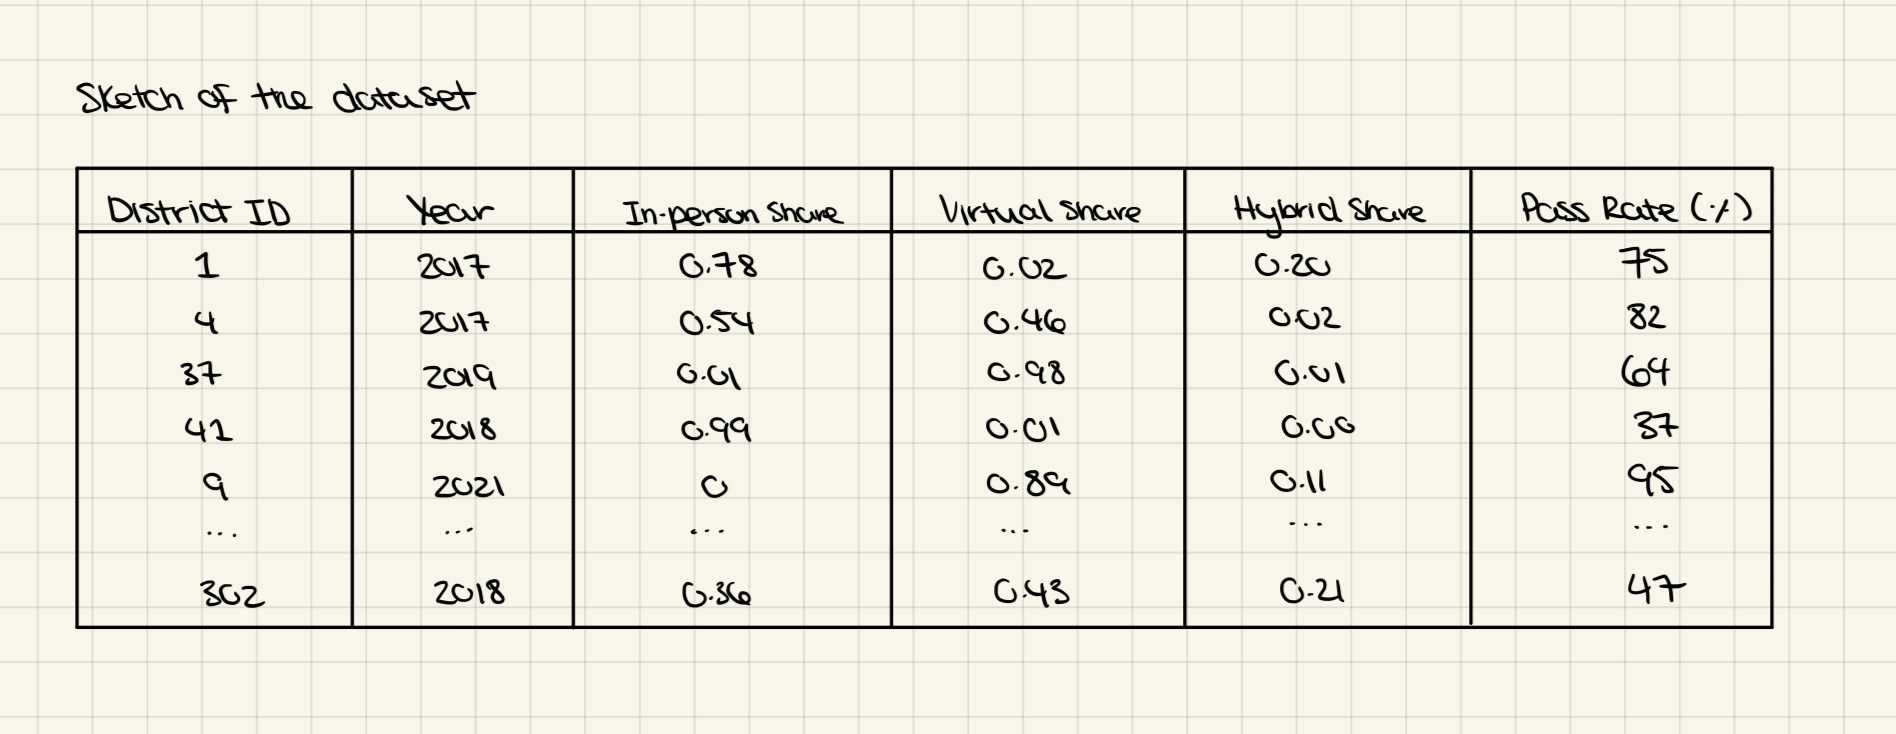 Sketch of the dataset
District ID Year In-person share Virtual share Hybrid share Pass Rate (%)
1 2017 0.78 0.02 0.20 75
4 2017 0.54 0.46 0.02 82
37 2019 0.01 0.98 0.01 64
41 2018 0.99 0.01 0.00 37
9 2021 0 0.89 0.11 95
... ... ... ... ... ...
302 2018 0.36 0.43 0.21 47